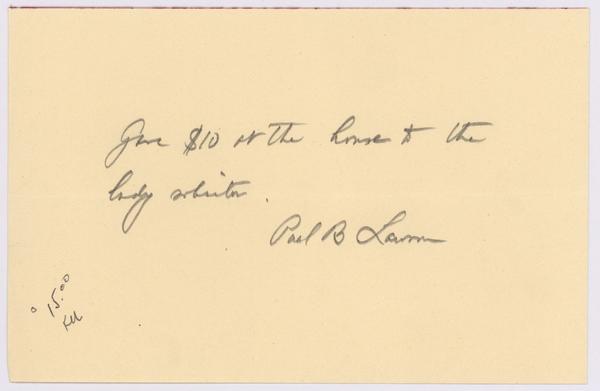 Gave $10 at the house to the
lady solicitor.
Paul B Lawson
15.00